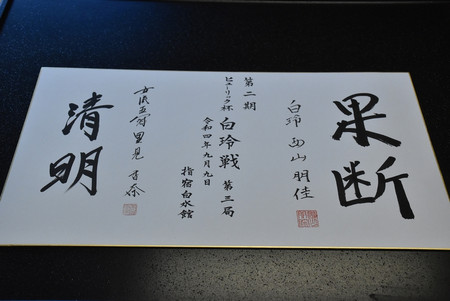 果断
白玲 西山朋佳
第二期
ヒューリック杯
白玲戦 第三局
令和四年九月九日
指宿白水館
女流五冠 里見香奈
清明